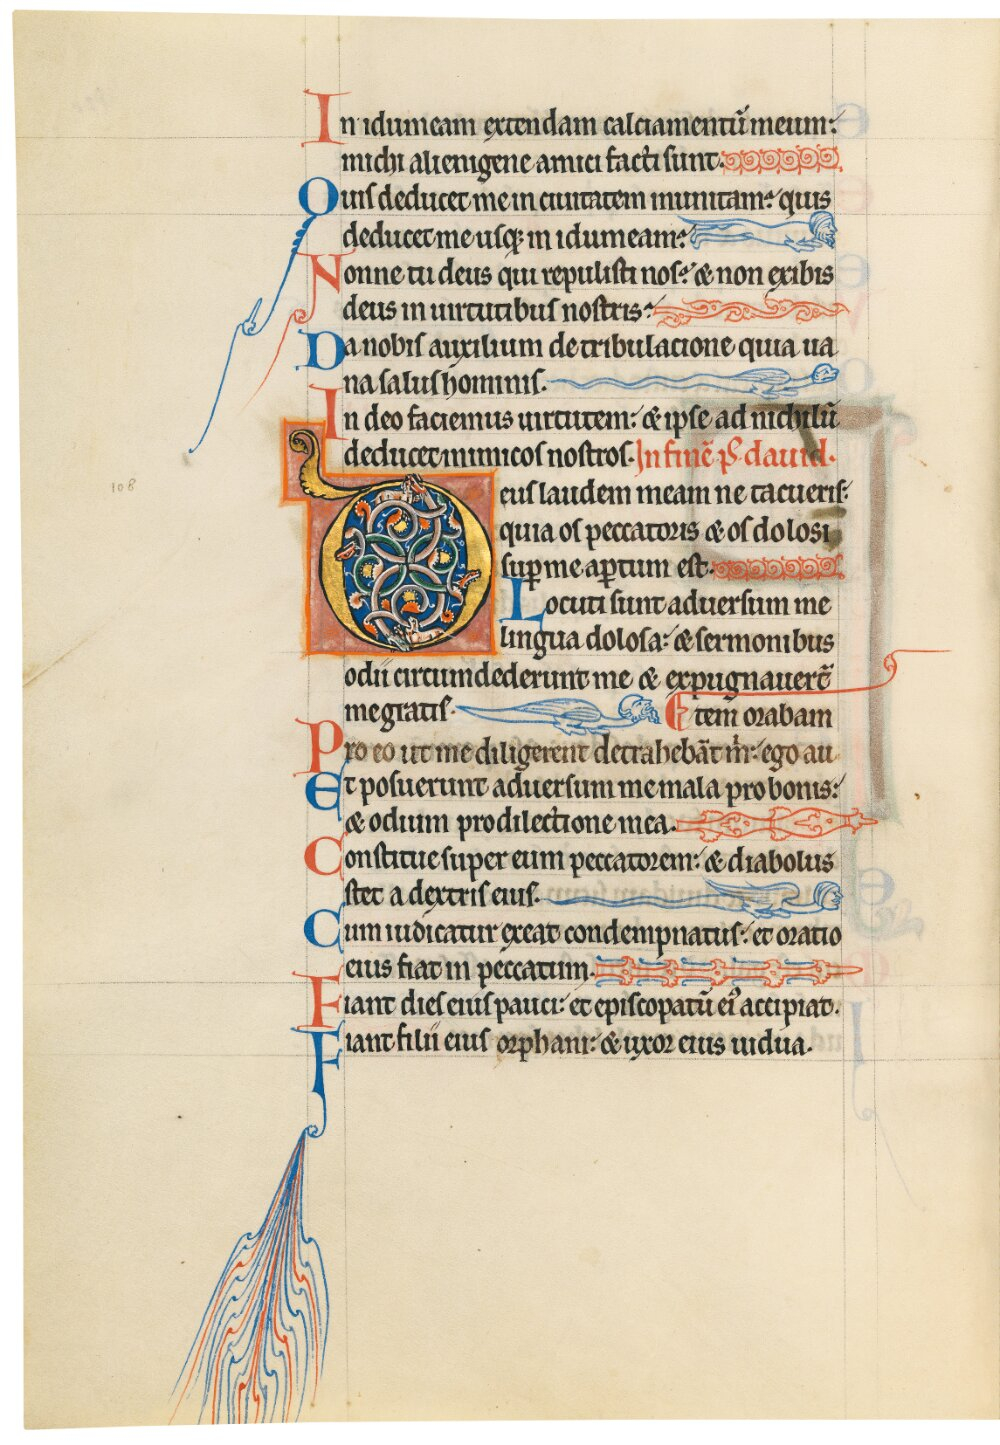 In idumeam extendam calciamentū meum:
michi alienigene amici facti sunt.
Quis deducet me in ciuitatem munitam: quis
deducet me usq; in idumeam:
Nonne tu deus qui repulisti nos: & non exibis
deus in uirtutibus nostris:
Da nobis auxilium de tribulacione quia ua
na salus hominis.
In deo faciemus uirtutem: & ipse ad nichilū
deducet inimicos nostros. In finē ps̄ dauid.
Deus laudem meam ne tacueris:
quia os peccatoris & os dolosi
sup me aptum est.
Locuti sunt aduersum me
lingua dolosa: & sermonibus
108
odii circumdederunt me & expugnauerē
me gratis. Etem orabam
Pro eo ut me diligerent detrahebāt m̄: ego au
Et posuerunt aduersum me mala pro bonis:
& odium pro dilectione mea.
Constitue super eum peccatorem: & diabolus
stet a dextris eius.
Cum iudicatur exeat condempnatus: et oratio
eius fiat in peccatum.
Fiant dies eius pauci: et episcopatū ei' accipiat.
Fiant filii eius orphani: & uxor eius uidua.